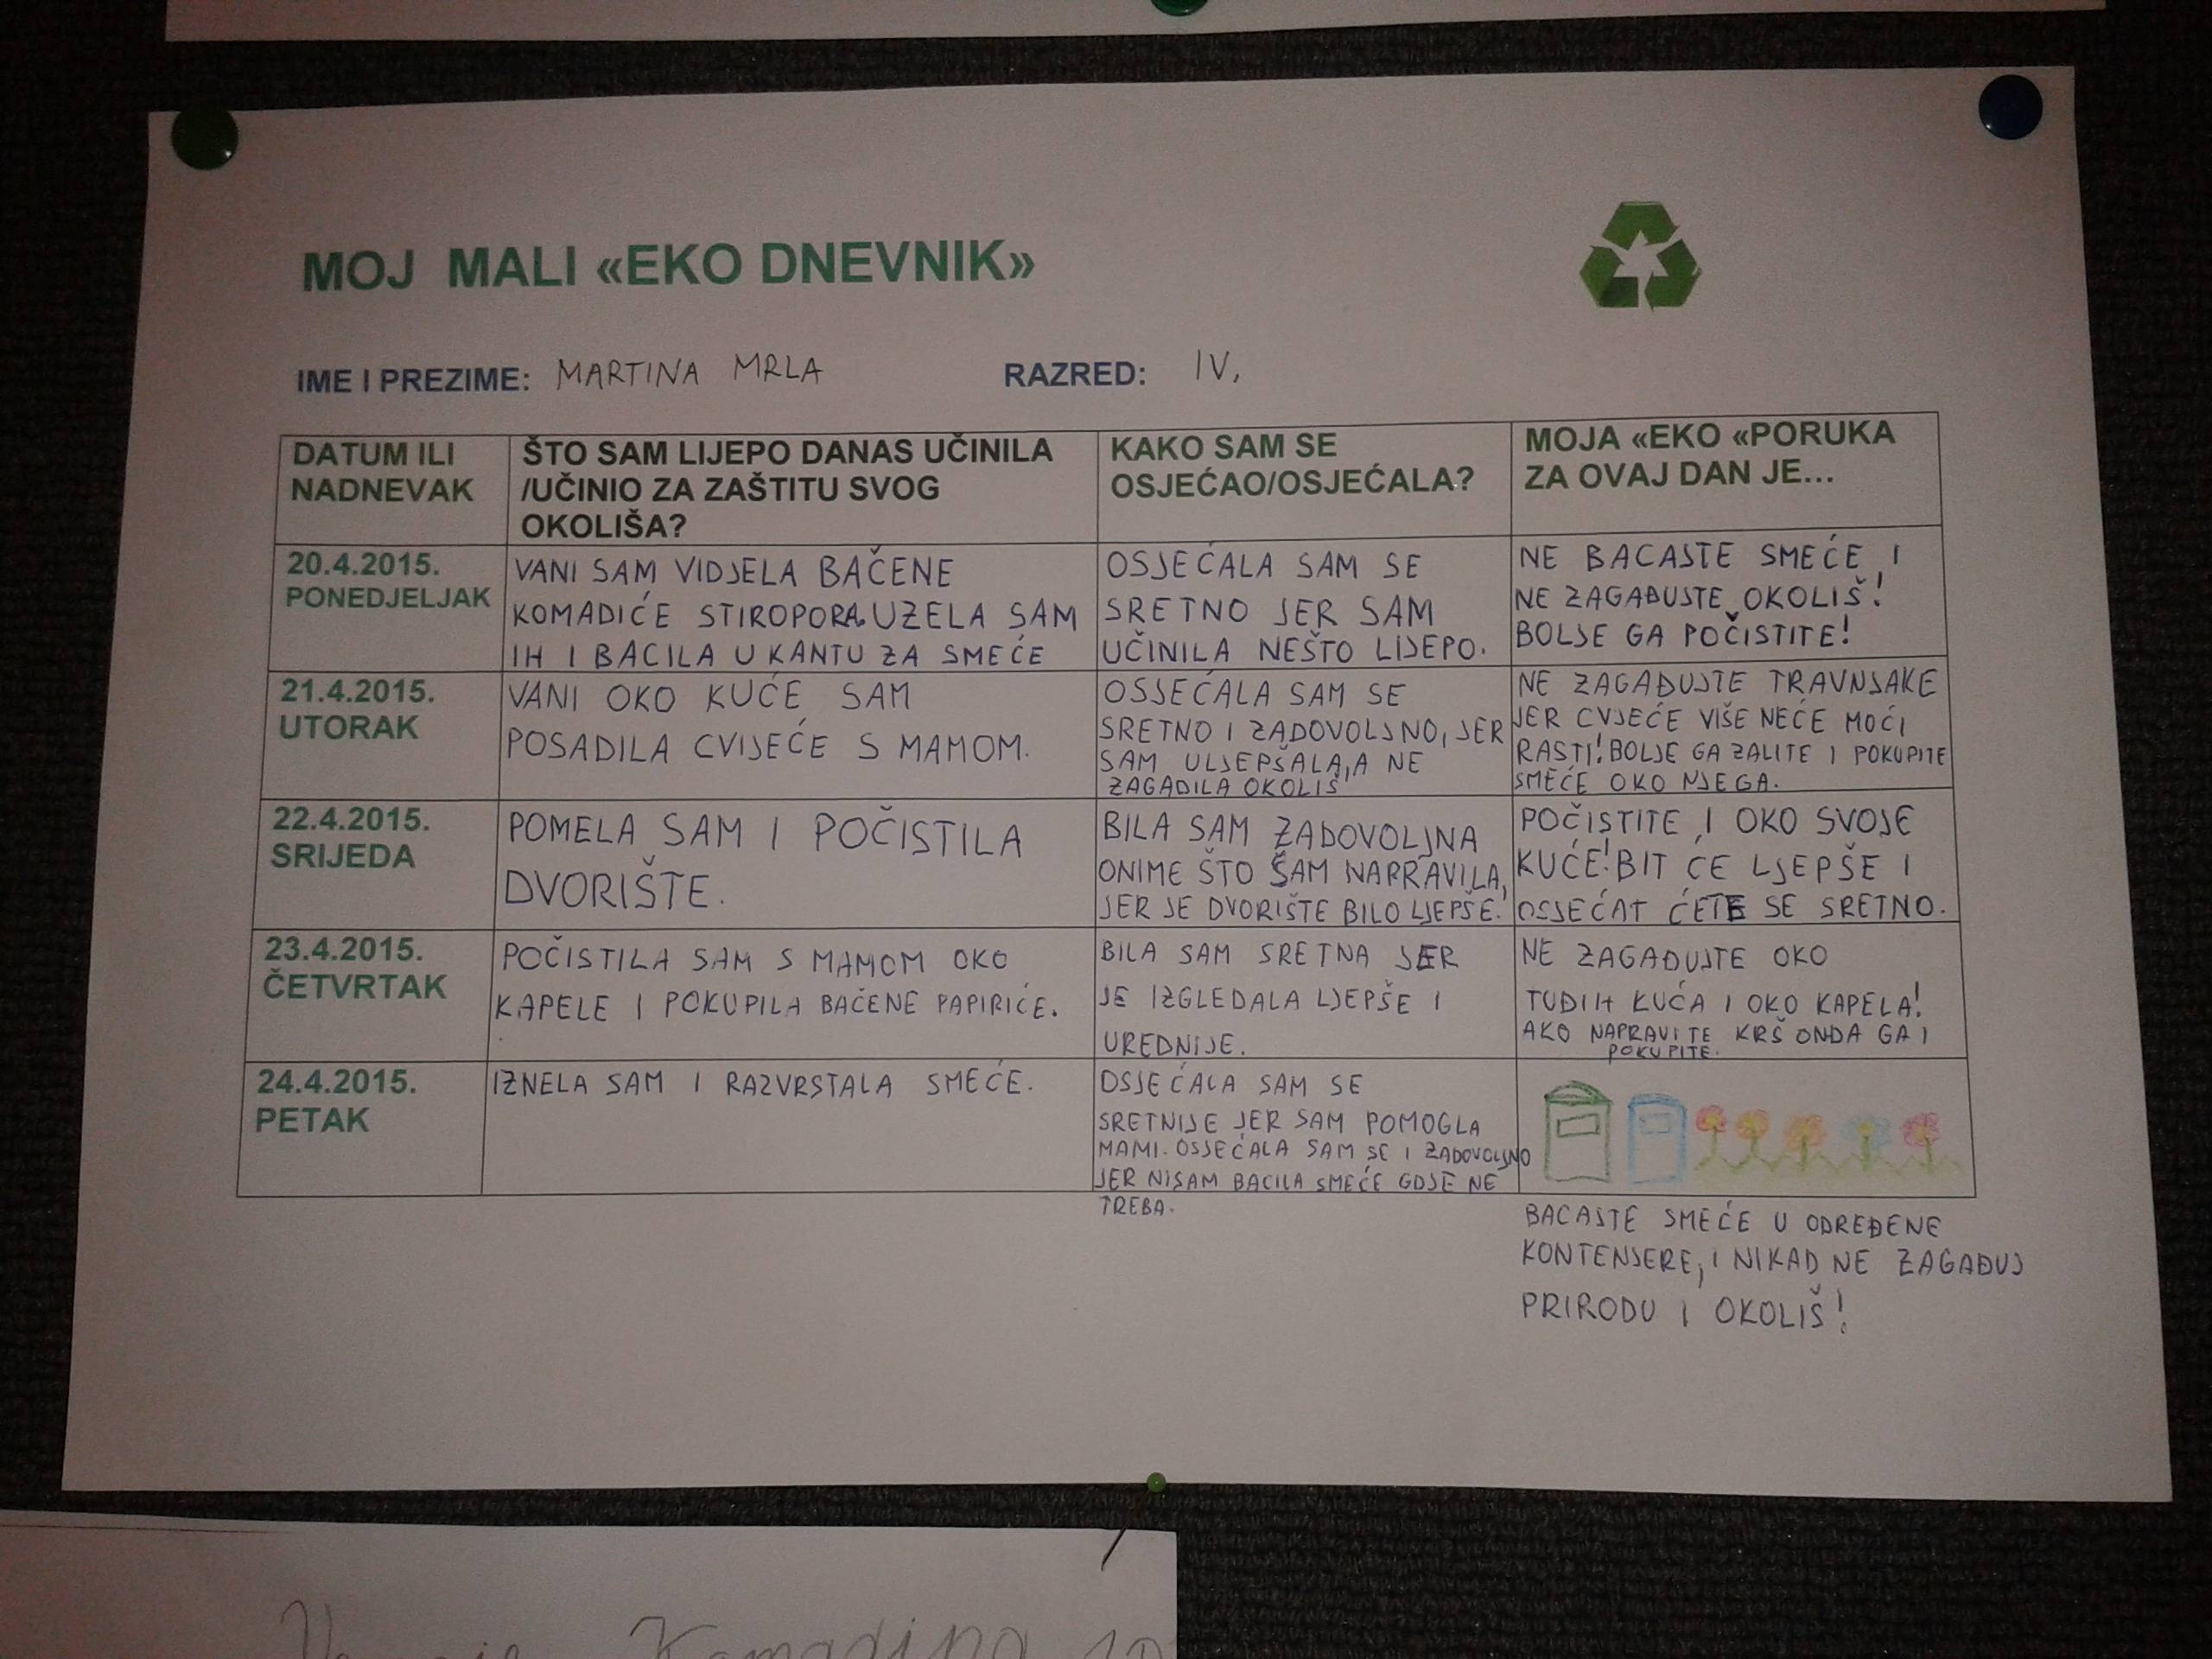 MOJ MALI «EKO DNEVNIK»
IME I PREZIME: MARTINA MRLA RAZRED: IV,
DATUM ILI
NADNEVAK
ŠTO SAM LIJEPO DANAS UČINILA
/UČINIO ZA ZAŠTITU SVOG
OKOLIŠA?
KAKO SAM SE
OSJEĆAO/OSJEĆALA?
MOJA «EKO «PORUKA
ZA OVAJ DAN JE...
20.4.2015.
PONEDJELJAK
VANI SAM VIDJELA BAČENE
KOMADIĆE STIROPORA. UZELA SAM
IH I BACILA U KANTU ZA SMEĆE
OSJEĆALA SAM SE
SRETNO JER SAM
UČINILA NEŠTO LIJEPO.
NE BACAJTE SMEĆE I
NE ZAGAĐUJTE OKOLIŠ!
BOLJE GA POČISTITE!
21.4.2015.
UTORAK
VANI OKO KUĆE SAM
POSADILA CVIJEĆE S MAMOM.
OSJEĆALA SAM SE
SRETNO I ZADOVOLJNO, JER
SAM ULJEPŠALA, A NE
ZAGADILA OKOLIŠ
NE ZAGAĐUJTE TRAVNJAKE
JER CVJEĆE VIŠE NEĆE MOĆI
RASTI! BOLJE GA ZALITE I POKUPITE
SMEĆE OKO NJEGA.
22.4.2015.
SRIJEDA
POMELA SAM I POČISTILA
DVORIŠTE.
BILA SAM ZADOVOLJNA
ONIME ŠTO SAM NAPRAVILA,
JER JE DVORIŠTE BILO LJEPŠE.
POČISTITE I OKO SVOJE
KUĆE! BIT ĆE LJEPŠE I
OSJEĆAT ĆETE SE SRETNO.
23.4.2015.
ČETVRTAK
POČISTILA SAM S MAMOM OKO
KAPELE I POKUPILA BAČENE PAPIRIĆE.
BILA SAM SRETNA JER
JE IZGLEDALA LJEPŠE I
UREDNIJE.
NE ZAGAĐUJTE OKO
TUĐIH KUĆA I OKO KAPELA!
AKO NAPRAVITE KRŠ ONDA GA I
POKUPITE.
24.4.2015.
PETAK
IZNELA SAM I RAZVRSTALA SMEĆE.
OSJEĆALA SAM SE
SRETNIJE JER SAM POMOGLA
MAMI. OSJEĆALA SAM SE I ZADOVOLJNO
JER NISAM BACILA SMEĆE GDJE NE
TREBA.
BACAJTE SMEĆE U ODREĐENE
KONTENJERE, I NIKAD NE ZAGAĐUJ
PRIRODU I OKOLIŠ!